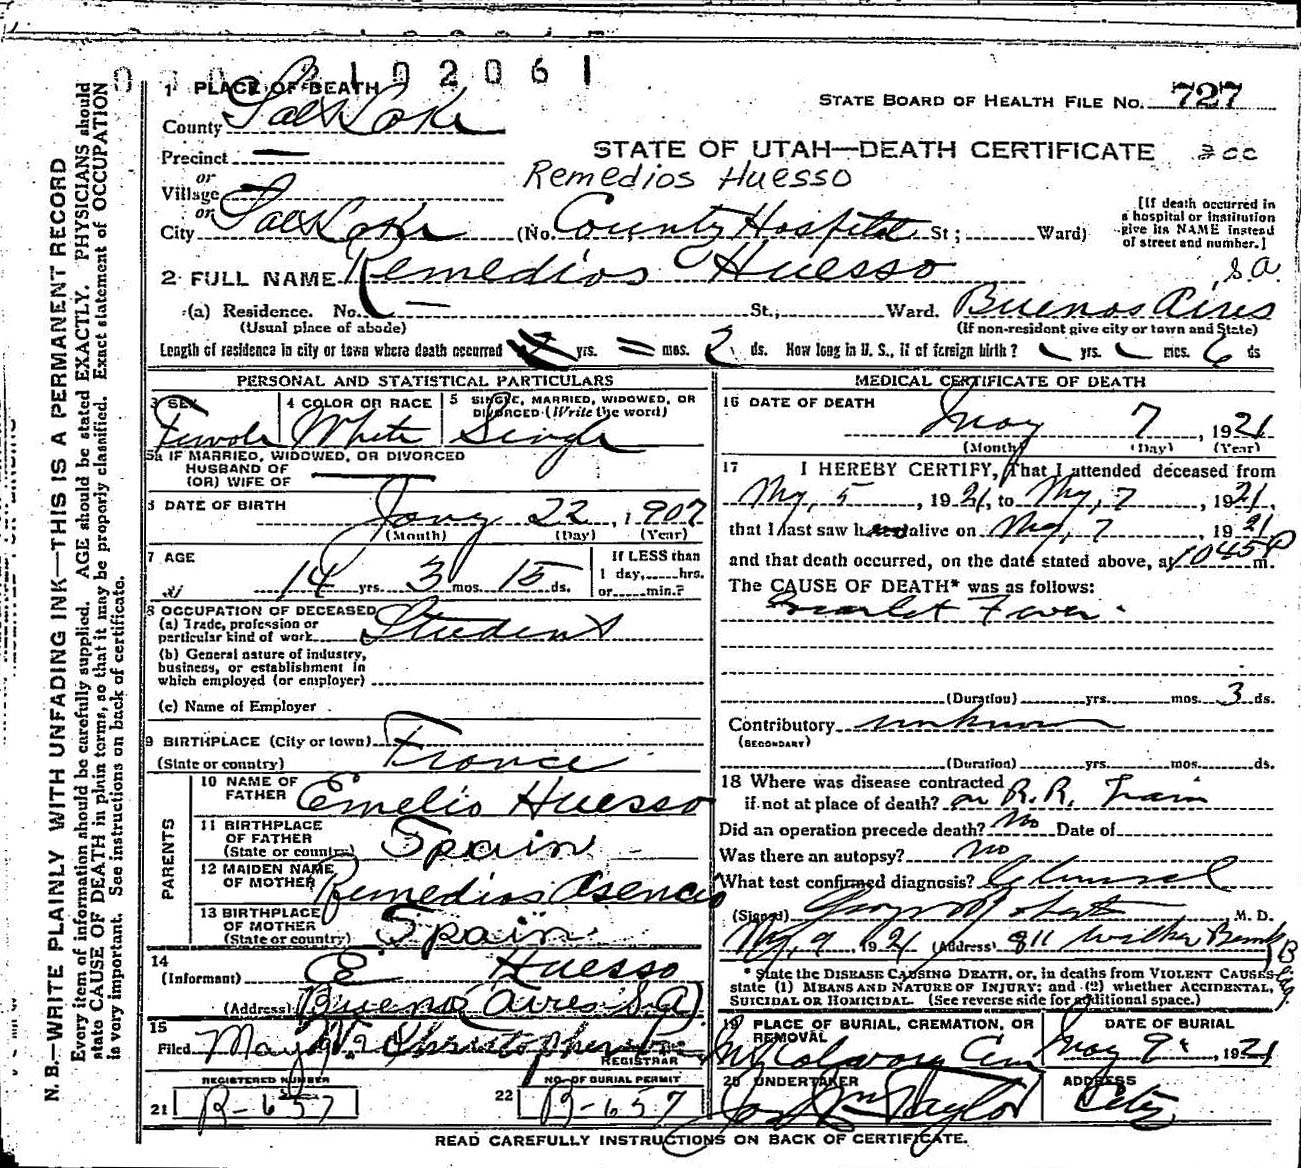 102061
1 PLACE OF DEATH
STATE BOARD OF HEALTH FILE NO. 727
County Salt Lake
STATE OF UTAH—DEATH CERTIFICATE
Precinct —
or
Remedios Huesso
Village —
or
City Salt Lake (No. County Hospital St; Ward)
[If death occurred in
a hospital or institution
give its NAME instead
of street and number.]
2 FULL NAME Remedios Huesso
S A
(a) Residence. No. — St., Ward. Buenos Aires
(Usual place of abode) (If non-resident give city or town and State)
Length of residence in city or town where death occurred yrs. — mos. 2 ds. How long in U. S., if of foreign birth? yrs. mos. 6 ds
PERSONAL AND STATISTICAL PARTICULARS
3 SEX Female
4 COLOR OR RACE White
5 SINGLE, MARRIED, WIDOWED, OR
DIVORCED (Write the word)
Single
5a IF MARRIED, WIDOWED, OR DIVORCED
HUSBAND OF
(OR) WIFE OF —
6 DATE OF BIRTH Jany 22, 1907
(Month) (Day) (Year)
7 AGE
14 yrs. 3 mos. 15 ds.
If LESS than
1 day, hrs.
or min.?
8 OCCUPATION OF DECEASED
(a) Trade, profession or
particular kind of work Student
(b) General nature of industry,
business, or establishment in
which employed (or employer)
(c) Name of Employer
9 BIRTHPLACE (City or town)
(State or country) France
PARENTS
10 NAME OF
FATHER Emelio Huesso
11 BIRTHPLACE
OF FATHER
(State or country) Spain
12 MAIDEN NAME
OF MOTHER Remedios Asencio
13 BIRTHPLACE
OF MOTHER
(State or country) Spain
14
(Informant) E Huesso
(Address) Buenos Aires S.A.
15
Filed May 9 Christopherson
REGISTRAR
REGISTERED NUMBER
21 B-657
NO. OF BURIAL PERMIT
22 B-657
MEDICAL CERTIFICATE OF DEATH
16 DATE OF DEATH
May 7, 1921
(Month) (Day) (Year)
17 I HEREBY CERTIFY, That I attended deceased from
My, 5, 1921, to My, 7, 1921,
that I last saw h alive on My, 7 1921
and that death occurred, on the date stated above, at 1045 P m.
The CAUSE OF DEATH* was as follows:
Scarlet Fever.
(Duration) yrs. mos. 3 ds.
Contributory unknown
(SECONDARY)
(Duration) yrs. mos. ds.
18 Where was disease contracted
if not at place of death? on R.R. Train
Did an operation precede death? No Date of
Was there an autopsy? No
What test confirmed diagnosis? Clinical
(Signed) M. D.
My, 9, 1921 (Address) 811 Walker Bank Bldg.
* State the DISEASE CAUSING DEATH, or, in deaths from VIOLENT CAUSES,
state (1) MEANS AND NATURE OF INJURY; and (2) whether ACCIDENTAL,
SUICIDAL OR HOMICIDAL. (See reverse side for additional space.)
19 PLACE OF BURIAL, CREMATION, OR
REMOVAL
Mt Calvary Cem
DATE OF BURIAL
May 9, 1921
20 UNDERTAKER
Taylor
ADDRESS
City
READ CAREFULLY INSTRUCTIONS ON BACK OF CERTIFICATE.
N. B.—WRITE PLAINLY WITH UNFADING INK—THIS IS A PERMANENT RECORD
Every item of information should be carefully supplied. AGE should be stated EXACTLY. PHYSICIANS should
state CAUSE OF DEATH in plain terms, so that it may be properly classified. Exact statement of OCCUPATION
is very important. See instructions on back of certificate.